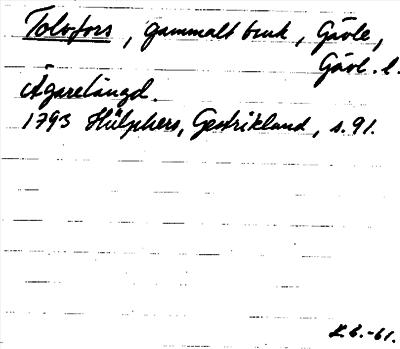 Tolvfors, gammalt bruk, Gävle,
Gävl. l.
Ägarelängd.
1793 Hülphers, Gestrikland, s. 91.
K.E.-61.